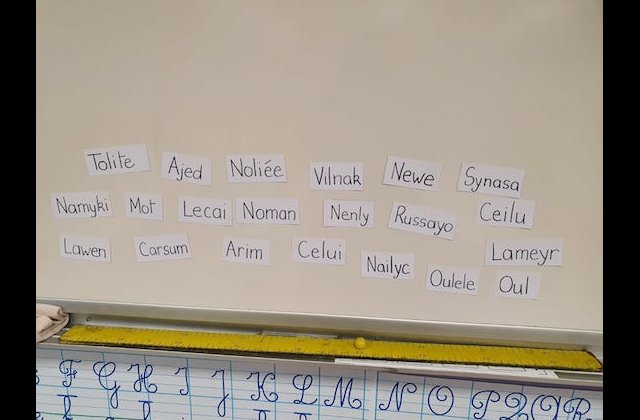 Tolite Ajed Noliée Vilnak Newe Synasa
Namyki Mot Lecai Noman Nenly Russayo Ceilu
Lawen Carsum Arim Celui Nailyc Oulele Oul Lameyr
F G H I J K L M N O P Q R